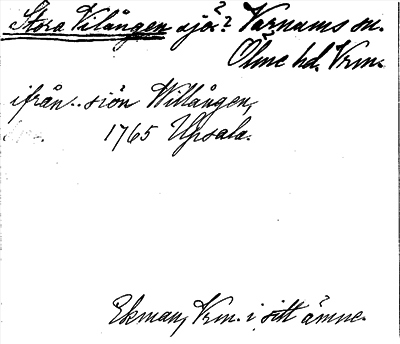 Stora Vilången sjö? Varnums sn.
Ölme hd. Vrm.
ifrån.. siön Willången,
1765 Upsala.
Ekman, Vrm. i sitt ämne.